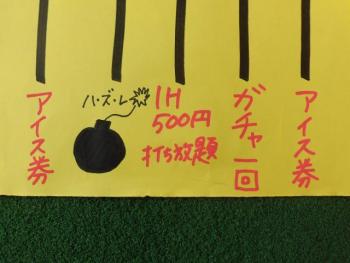 アイス券
ハ・ズ・レ
1H
500円
打ち放題
ガチャ一回
アイス券